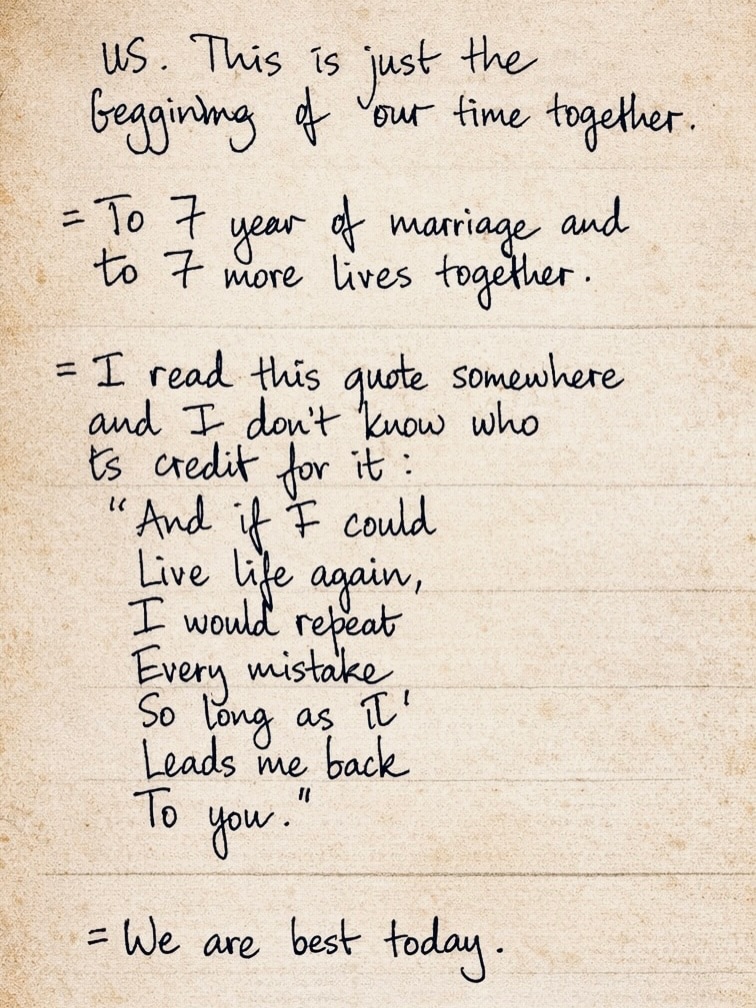 us. This is just the
beggining of our time together.
= To 7 year of marriage and
to 7 more lives together.
= I read this quote somewhere
and I don't know who
ts credit for it :
"And if I could
Live life again,
I would repeat
Every mistake
So long as It'
Leads me back
To you."
= We are best today.